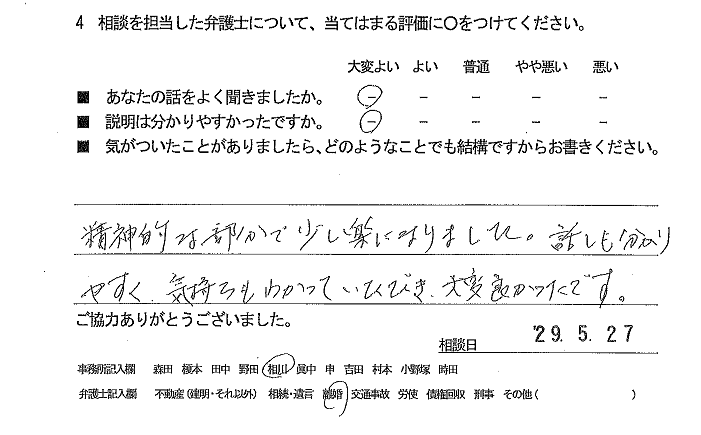 4 相談を担当した弁護士について、当てはまる評価に○をつけてください。
大変よい よい 普通 やや悪い 悪い
■ あなたの話をよく聞きましたか。 － － － － －
■ 説明は分かりやすかったですか。 － － － － －
■ 気がついたことがありましたら、どのようなことでも結構ですからお書きください。
精神的な部分で少し楽になりました。話しも分かり
やすく、気持ちもわかっていただき、大変良かったです。
ご協力ありがとうございました。
相談日 '29. 5. 27
事務所記入欄 森田 榎本 田中 野田 相川 眞中 申 吉田 村本 小野塚 時田
弁護士記入欄 不動産(建明・それ以外) 相続・遺言 離婚 交通事故 労使 債権回収 刑事 その他( )